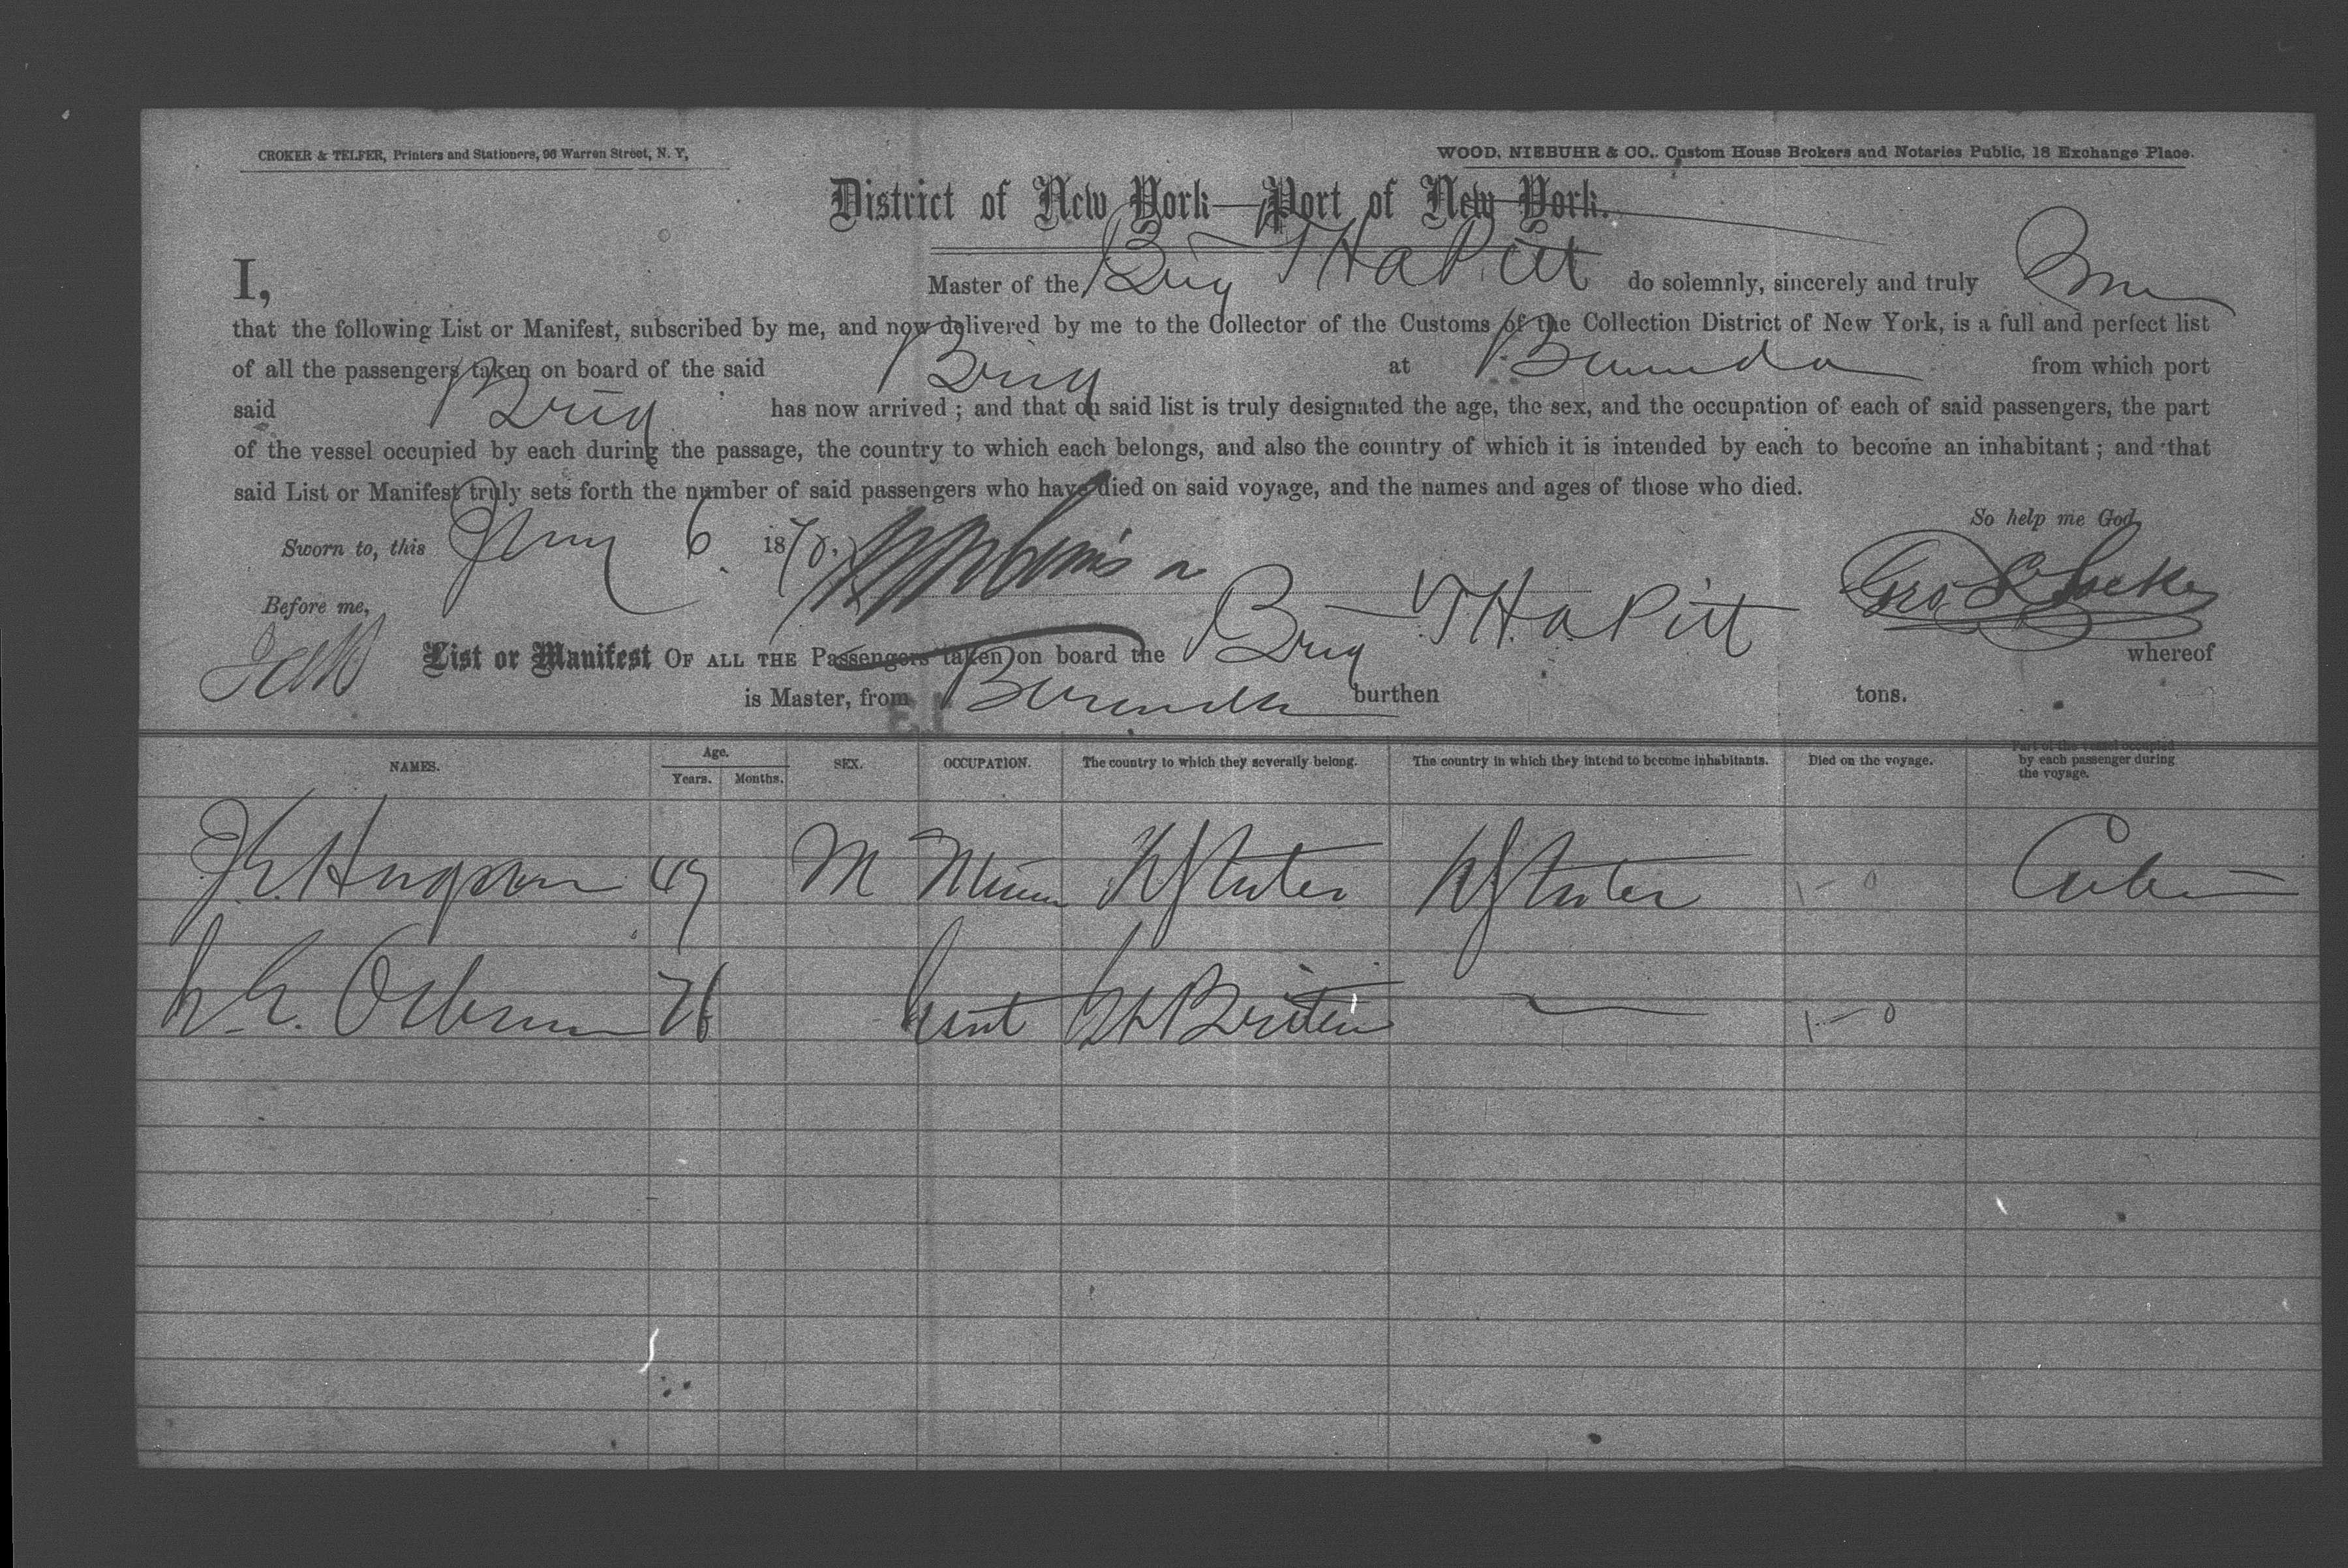 CROKER & TELFER, Printers and Stationers, 96 Warren Street, N. Y,
WOOD, NIEBUHR & CO., Custom House Brokers and Notaries Public, 18 Exchange Place.
District of New York—Port of New York.
I, Master of the Brig T H A Pitt do solemnly, sincerely and truly
that the following List or Manifest, subscribed by me, and now delivered by me to the Collector of the Customs of the Collection District of New York, is a full and perfect list
of all the passengers taken on board of the said Brig at Bermuda from which port
said Brig has now arrived ; and that on said list is truly designated the age, the sex, and the occupation of each of said passengers, the part
of the vessel occupied by each during the passage, the country to which each belongs, and also the country of which it is intended by each to become an inhabitant ; and that
said List or Manifest truly sets forth the number of said passengers who have died on said voyage, and the names and ages of those who died.
So help me God,
Sworn to, this 6 1878.
Before me,
List or Manifest OF ALL THE Passengers taken on board the Brig T H A Pitt whereof
is Master, from Bermuda burthen tons.
NAMES. Age. Years. Months. SEX. OCCUPATION. The country to which they severally belong. The country in which they intend to become inhabitants. Died on the voyage. Part of the vessel occupied by each passenger during the voyage.
49 M U States U States Cabin
Osborn Gent Gt Britain